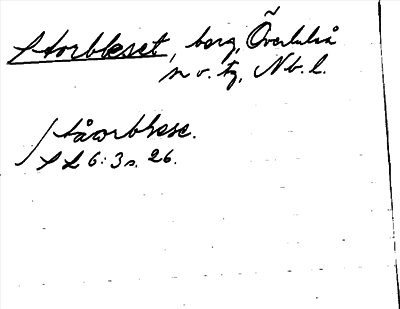 Storbleset, berg, Överluleå
n v. tg, Nb. l.
Ståorbläse.
SL 6:3 s. 26.